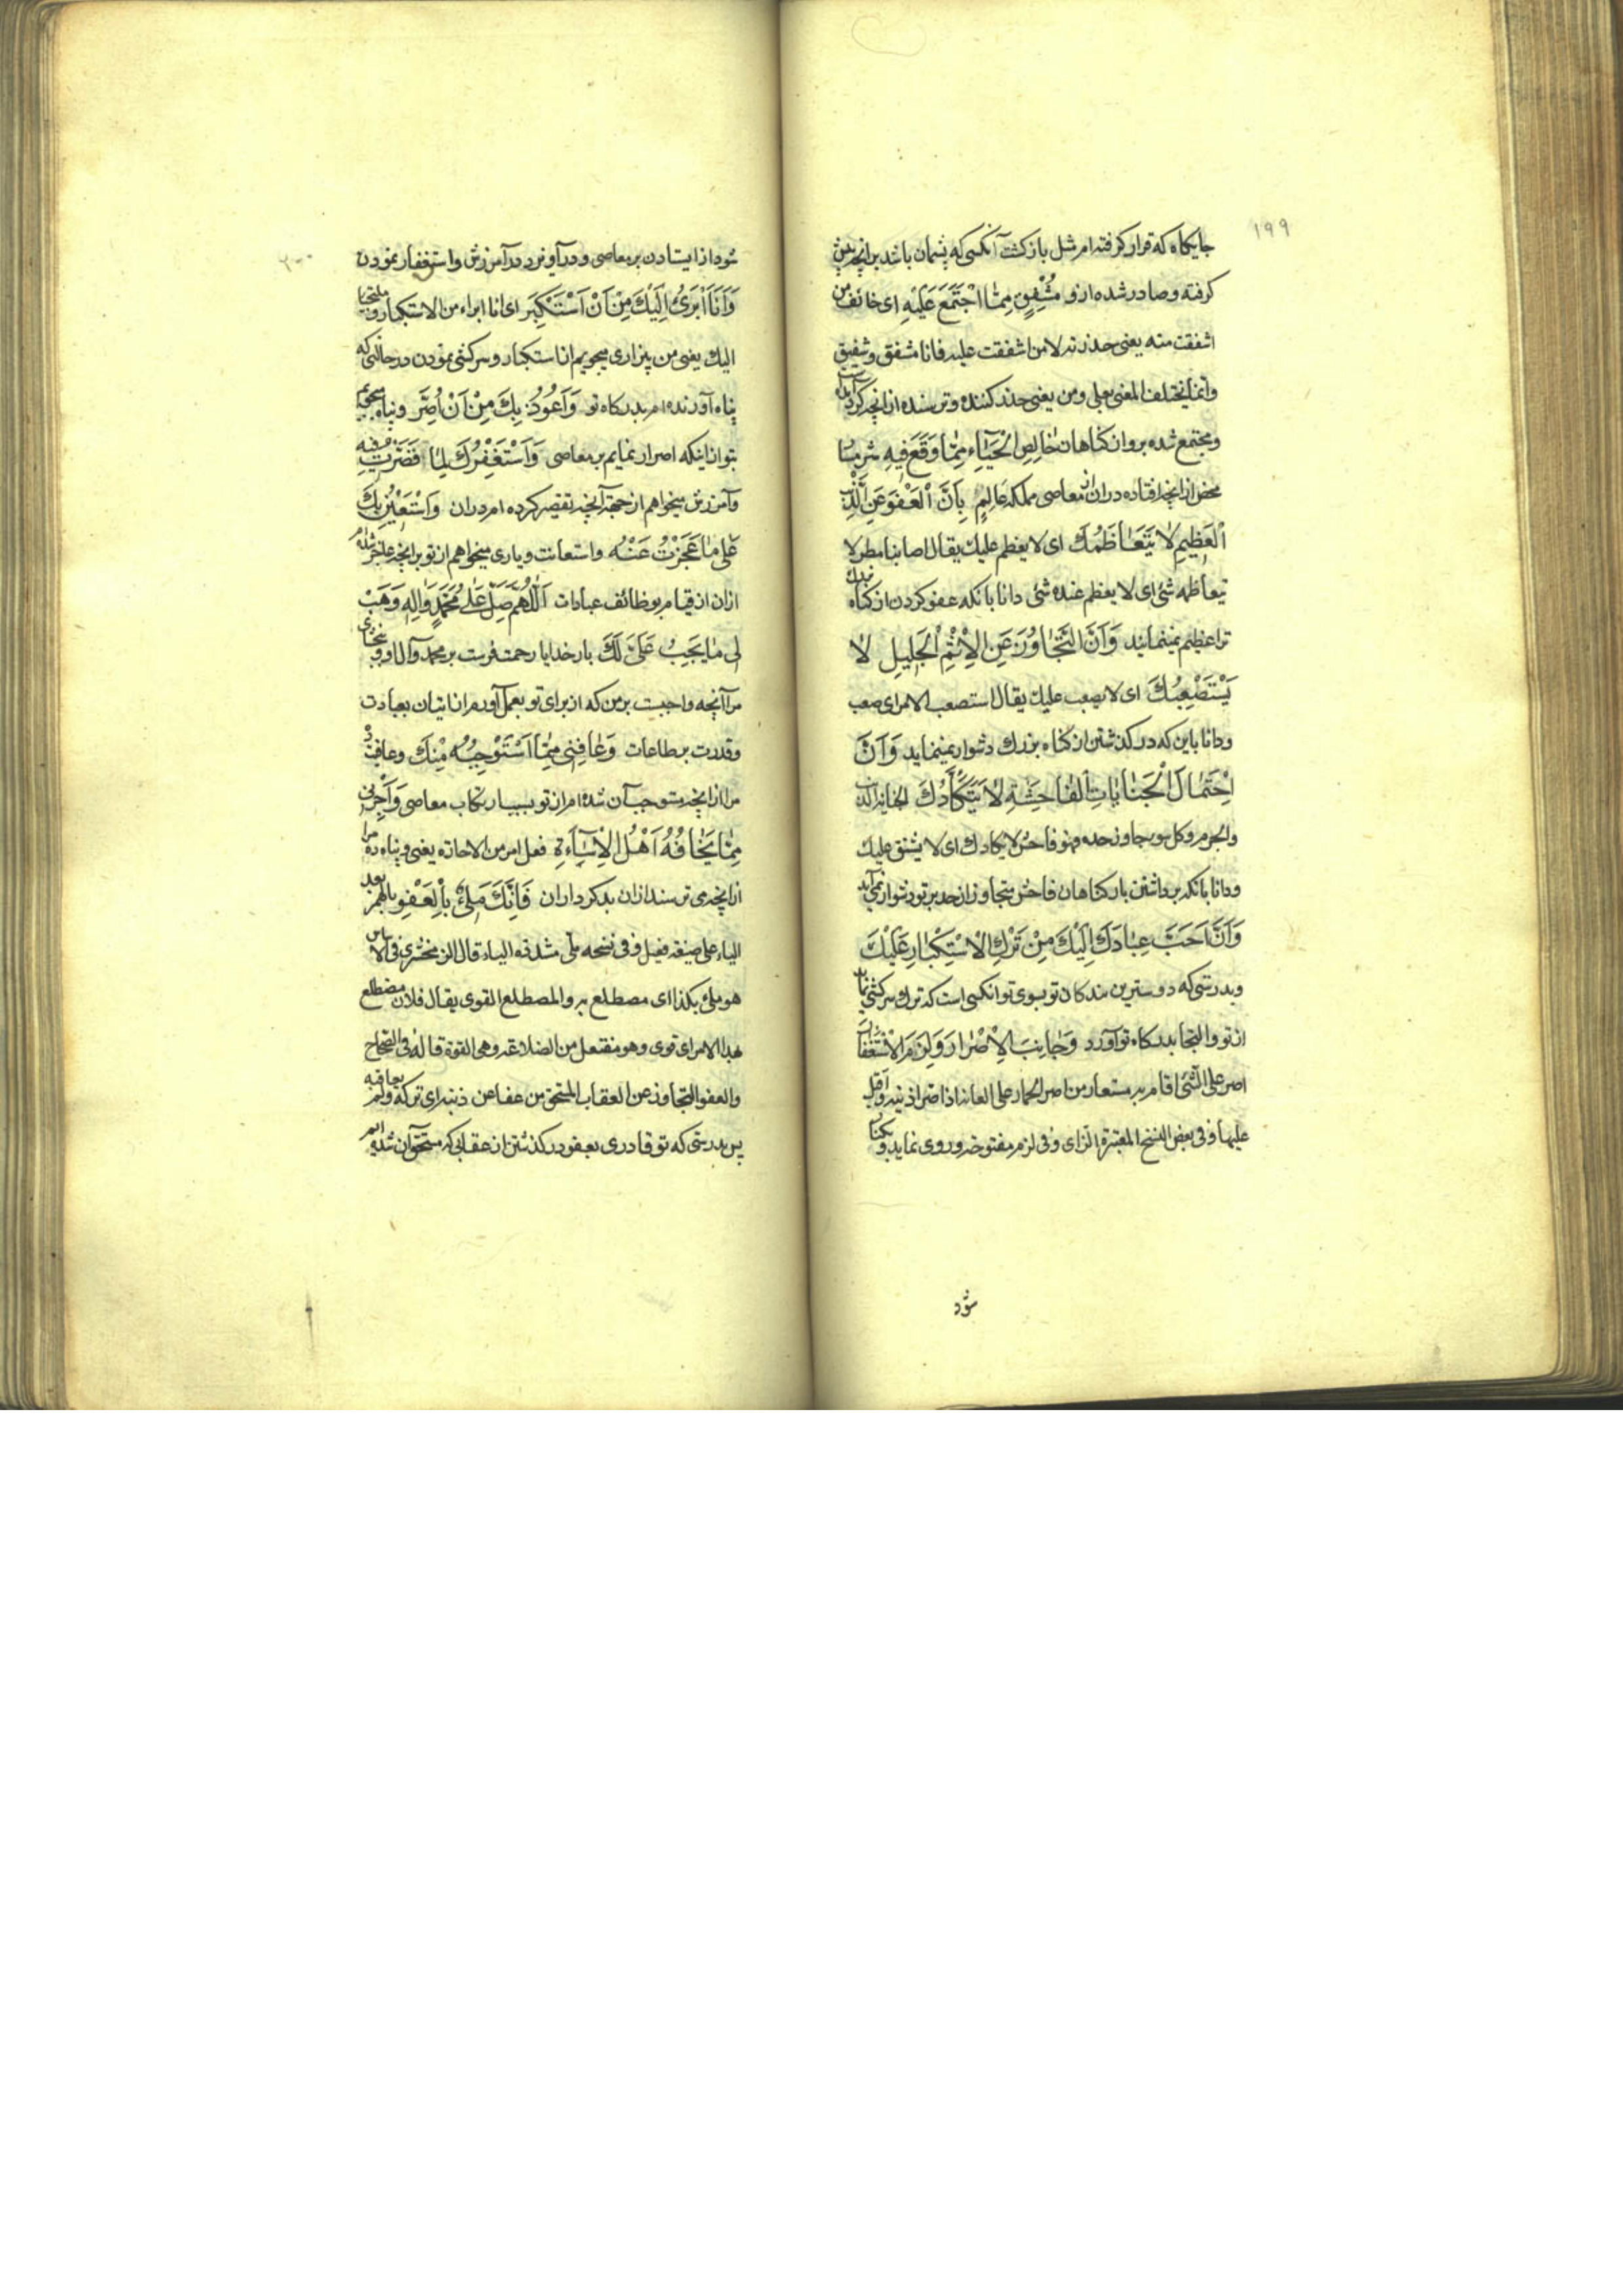 ۱۹۹
جایکاه که قرار کرفته‌ام مثل بازکشت آنکسی که پشمان باشد بر انچه پیش
کرفته و صادر شده از و مُشْفِقٍ مِمَّا اجْتَمَعَ عَلَیْهِ ای خائف من
اشفقت منه یعنی حذرته لا من اشفقت علیه فانا مشفق و شفیق
وانما یختلف المعنی بعلی و من یعنی حذر کننده و ترسنده از انچه کرد
و مجتمع شده برو ان کناهان خَالِصِ الْحَیَاءِ مِمَّا وَقَعَ فِیهِ شرمسا
محض از انچه افتاده در ان معاصی مملکه عَالِمٍ بِاَنَّ الْعَفْوَ عَنِ الذَّنْبِ
الْعَظِیمِ لَا یَتَعَاظَمُكَ ای لا یعظم علیك یقال اصابنا مطر لا
یتعاظمه شئ ای لا یعظم عنده شئ دانا بانکه عفو کردن از کناه
ترا عظیم نمینماید وَاَنَّ التَّجَاوُزَ عَنِ الْاِثْمِ الْجَلِیلِ لَا
یَسْتَصْعِبُكَ ای لا یصعب علیك یقال استصعب الامر ای صعب
و دانا باین که در کذشتن از کناه بزرك دشوار نمینماید وَاَنَّ
احْتِمَالَ الْجِنَایَاتِ الْفَاحِشَةِ لَا یَتَكَأَّدُكَ الجنایة الذنب
والجرم و کل سوء جاوز حده فهو فاحش لا یتکادك ای لا یشق علیك
و دانا بانکه برداشتن بار کناهان فاحش متجاوز از حد بر تو دشوار نمی‌آید
وَاَنَّ اَحَبَّ عِبَادِكَ اِلَیْكَ مَنْ تَرَكَ الْاِسْتِکْبَارَ عَلَیْكَ
و بدرستی که دوسترین بندکان تو بسوی تو انکسی است که ترك سرکشی نماید
از تو و التجا بدرکاه تو آورد وَجَانَبَ الْاِصْرَارَ وَلَزِمَ الْاِسْتِغْفَارَ
اصر علی الشئ اقام به مستعار من اصر الحمار علی العانة اذا صر اذنیه و اقبل
علیها و فی بعض النسخ المعتبرة الزای و فی لزم مفتوحة و روی نماید
شود
۲۰۰
شود از ایستادن بر معاصی و در آویزد در آمرزش و استغفار نمودن
وَاَنَا اَبْرَئُ اِلَیْكَ مِنْ اَنْ اَسْتَکْبِرَ ای انا ابراء من الاستکبار ملتجیا
الیك یعنی من بیزاری میجویم از استکبار و سرکشی نمودن در حالتی که
پناه آورنده‌ام بدرکاه تو وَاَعُوذُ بِكَ مِنْ اَنْ اُصِرَّ و پناه میجویم
بتو از اینکه اصرار نمایم بر معاصی وَاَسْتَغْفِرُكَ لِمَا قَصَّرْتُ فِیهِ
و آمرزش میخواهم از جهة آنچه تقصیر کرده‌ام در ان وَاَسْتَعِینُ بِكَ
عَلَی مَا عَجَزْتُ عَنْهُ و استعانت و یاری میخواهم از تو بر انچه عاجز شده‌ام
از ان از قیام بوظائف عبادات اَللّٰهُمَّ صَلِّ عَلَی مُحَمَّدٍ وَاٰلِهِ وَهَبْ
لِی مَا یَجِبُ عَلَیَّ لَكَ بار خدایا رحمت فرست بر محمد و آل او و ببخشای
مرا آنچه واجبست بر من که از برای تو بعمل آورم از اتیان بعبادت
و قدرت بر طاعات وَعَافِنِی مِمَّا اَسْتَوْجِبُهُ مِنْكَ و عافیت ده
مرا از انچه مستوجب آن شده‌ام از تو بسبب ارتکاب معاصی وَاَجِرْنِی
مِمَّا یَخَافُهُ اَهْلُ الْاِسَاءَةِ فعل امر من الاجارة یعنی و پناه ده مرا
از انچه می ترسند از ان بدکرداران فَاِنَّكَ مَلِیْءٌ بِالْعَفْوِ بالهمز بعد
الیاء علی صیغة فعیل و فی نسخه ملّی مشددة الیاء قال الزمخشری فی الاساس
هو ملئ بکذا ای مضطلع به و المضطلع القوی یقال فلان مضطلع
بهذا الامر ای قوی و هو مفتعل من الضلاعة و هی القوة قاله فی الصحاح
والعفو التجاوز عن العقاب المستحق من عفا عن ذنبه ای ترکه و لم یعاقبه
پس بدرستی که تو قادری بعفو در کذشتن از عقابی که مستحق آن شده ایم